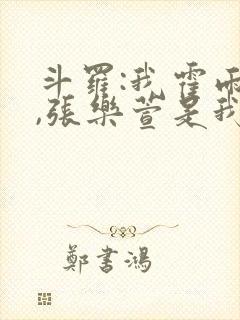 斗羅:我霍雨
,張樂萱是我
鄭書鴻